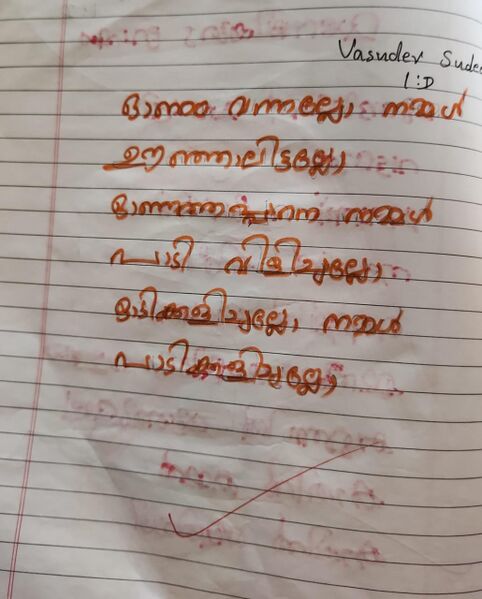 Vasudev Sude
1:D
ഓണം വന്നല്ലോ നമ്മൾ
ഊഞ്ഞാലിട്ടല്ലോ
ഓണത്തപ്പനെ നമ്മൾ
പാടി വിളിച്ചല്ലോ
ഓടിക്കളിച്ചല്ലോ നമ്മൾ
പാടിക്കളിച്ചല്ലോ